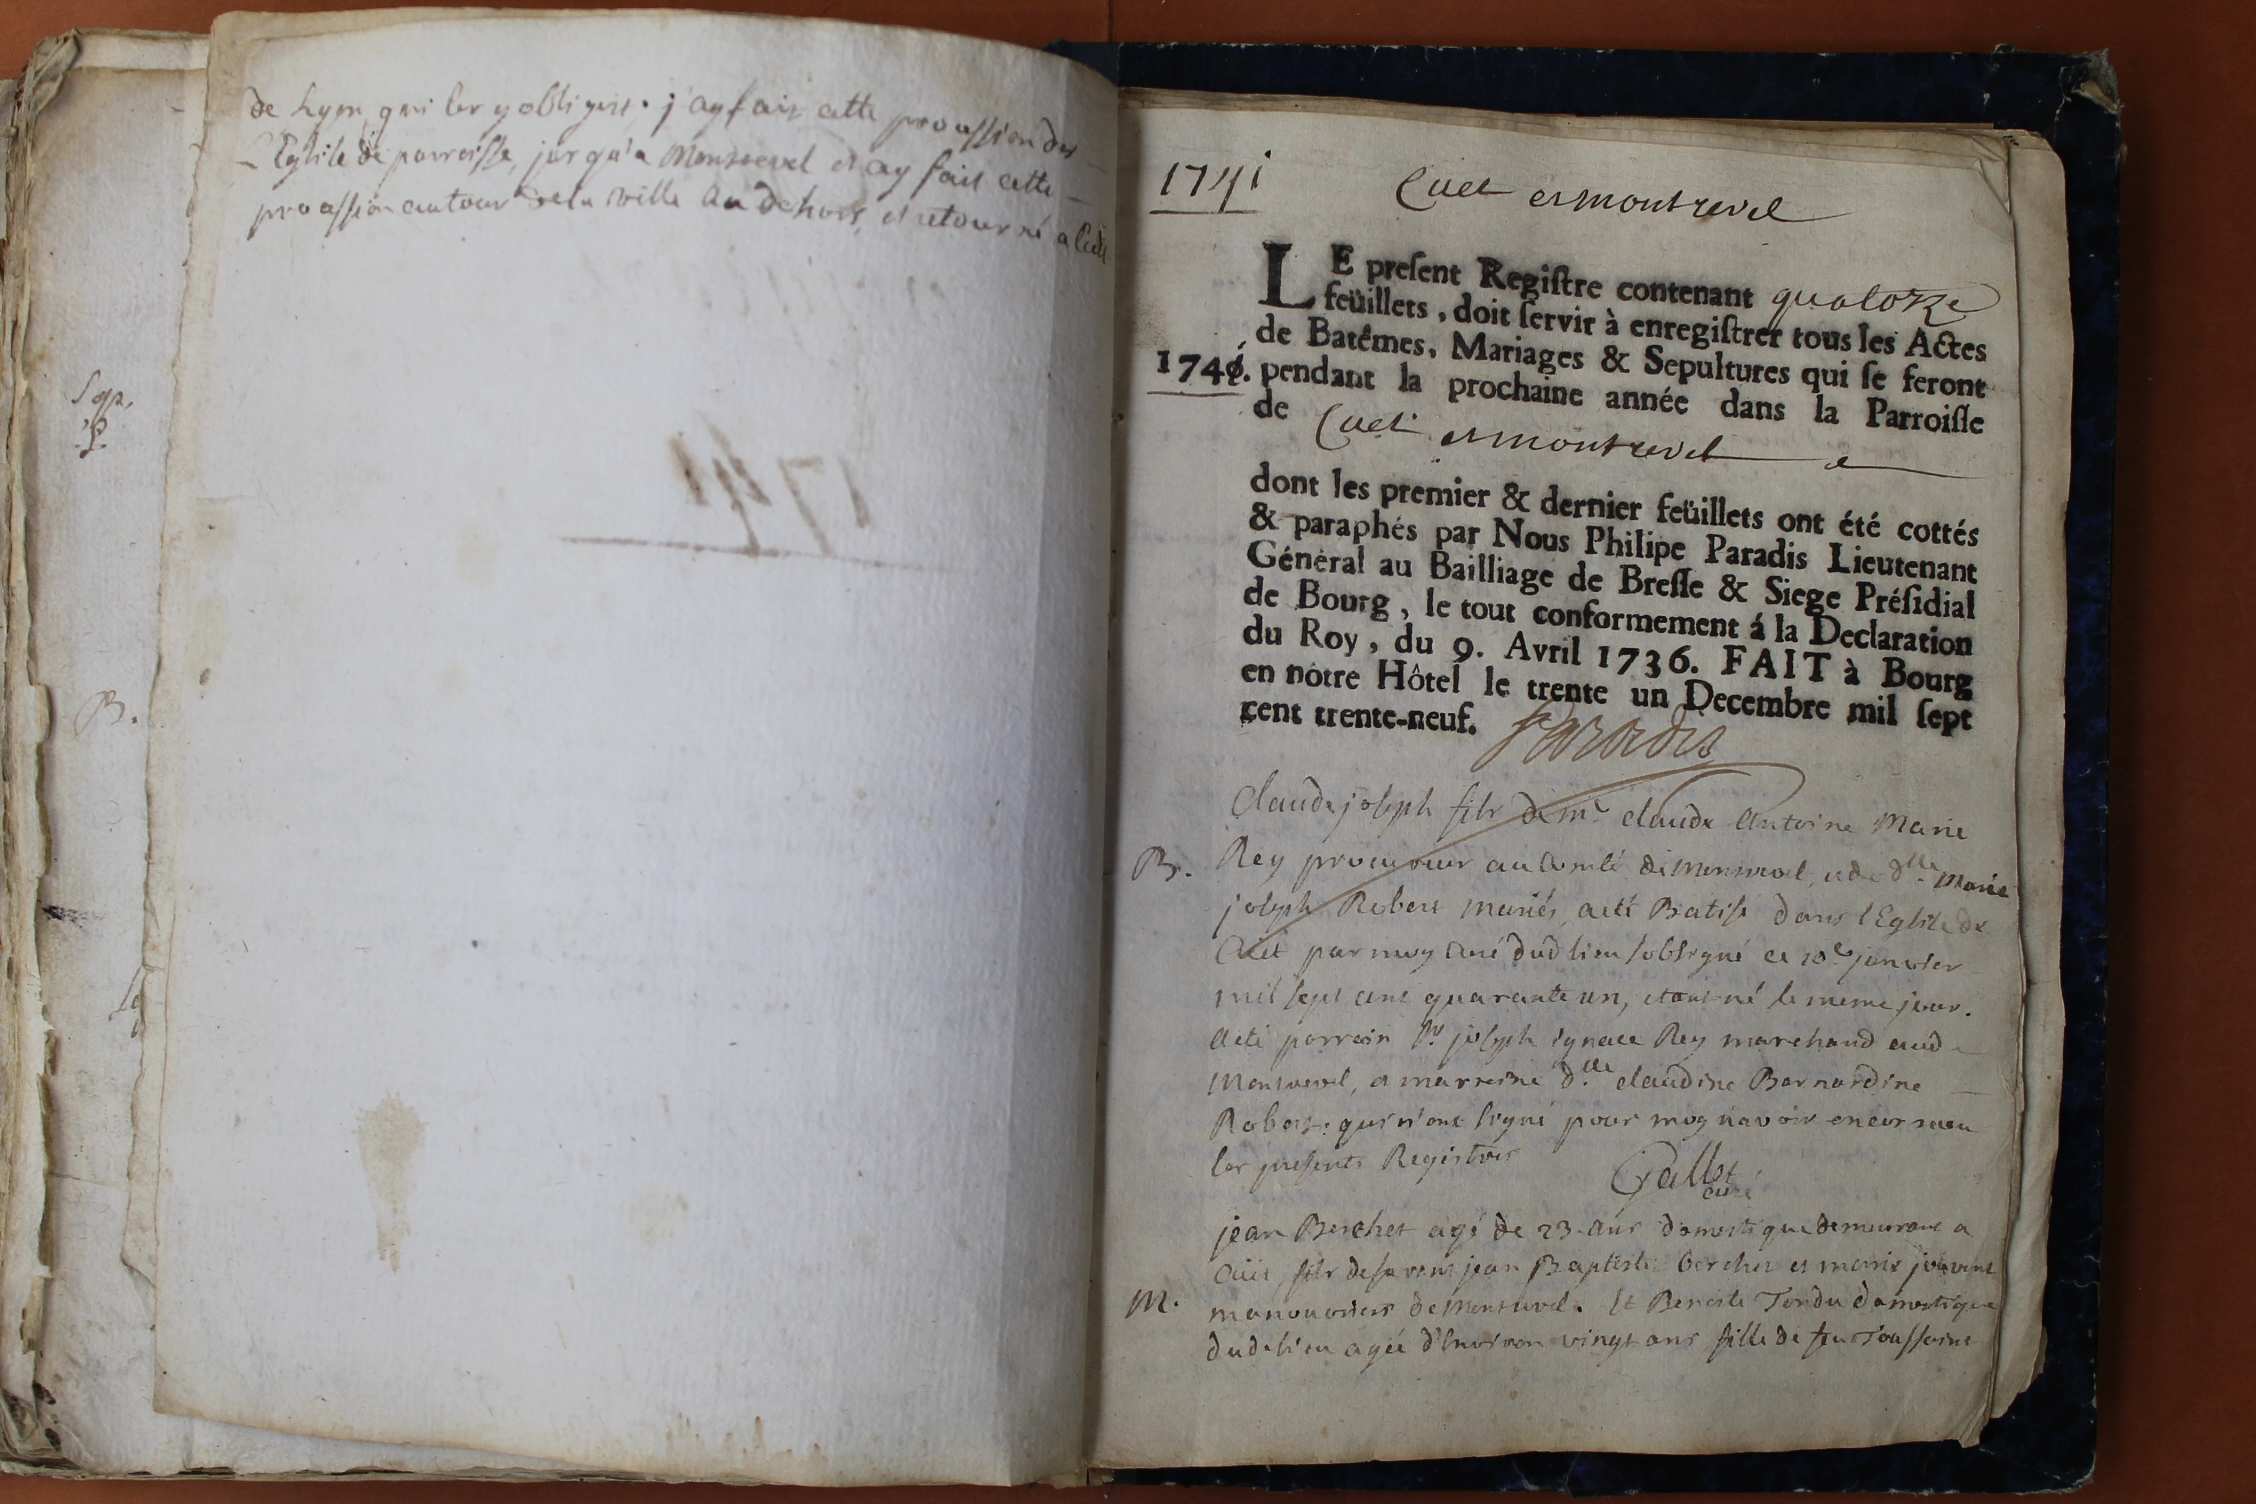 de Lyon qui les y obligeit. j'ay fait cette procession des
L'Eglise de parroisse, jusqu'a Montrevel et ay fait cette
procession autour de la ville au dehors, et retourné a Cuet
1741
Sep.
B.
1741
Cuet et montrevel
LE present Registre contenant quatorze
feüillets, doit servir à enregistrer tous les Actes
de Batêmes, Mariages & Sepultures qui se feront
1740. pendant la prochaine année dans la Parroisse
de Cuet et montrevel
dont les premier & dernier feüillets ont été cottés
& paraphés par Nous Philipe Paradis Lieutenant
Général au Bailliage de Bresse & Siege Présidial
de Bourg, le tout conformement á la Declaration
du Roy, du 9. Avril 1736. FAIT à Bourg
en notre Hôtel le trente un Decembre mil sept
cent trente-neuf. Paradis
Claude joseph fils de mr. claude Antoine Marie
B. Rey procureur au Comté de Montrevel, et de dlle. Marie
joseph Robert mariés, a eté Batisé dans l'Eglise de
Cuet par moy curé dud lieu sobsigné ce 10e janvier
mil sept cent quarante un, etant né le meme jour.
a eté parrain sr. joseph ignace Rey marchand aud
Montrevel, et marreine dlle. claudine Barnardine
Robert. qui n'ont signé pour moy n'avoir encor receu
les presents Registres
Gallet
curé
jean Berchet agé de 23 ans domestique demeurant a
Cüet, fils de jean Baptiste berchet et marie jouvent
M. manouvriers de Montrevel. Et Benoite Tondu domestique
dud. lieu agée d'Environ vingt ans fille de feu Toussaint